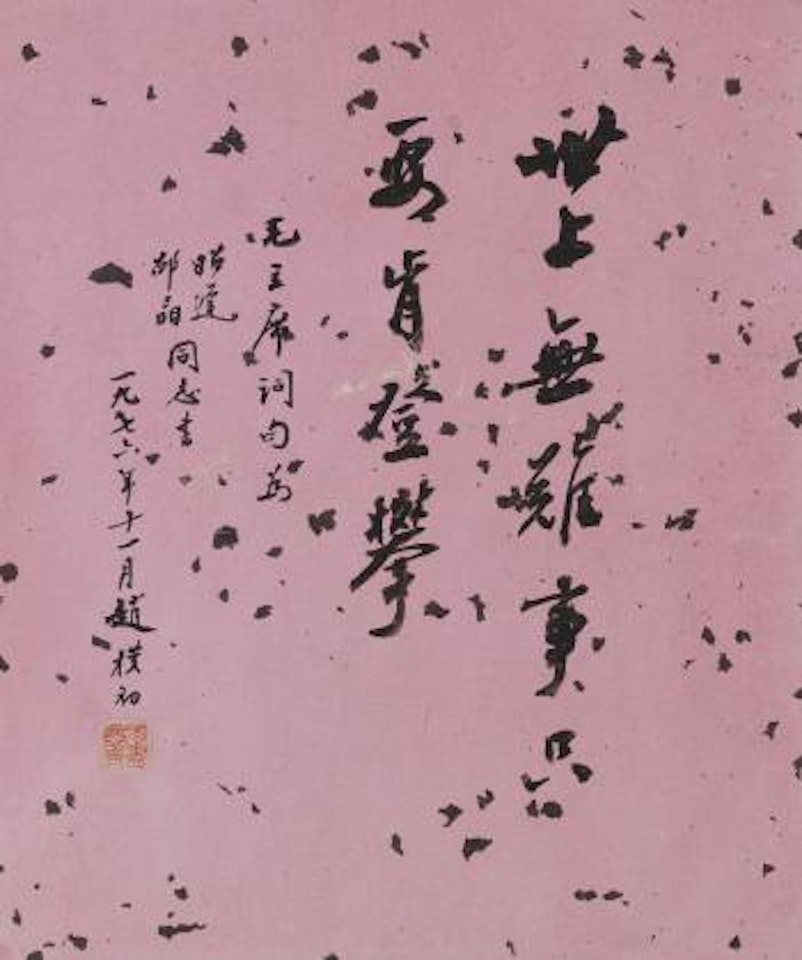 世上無難事只
要肯登攀
毛主席詞句為
同志書
一九七六年十一月趙樸初